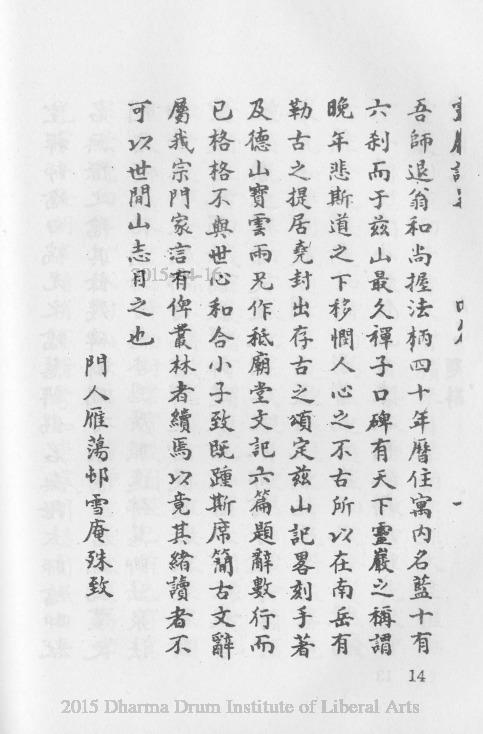 吾師退翁和尚握法柄四十年曆住寓內名藍十有
六刹而于玆山最久禪子口碑有天下靈巖之稱謂
晚年悲斯道之下移憫人心之不古所以在南岳有
勒古之提居堯封出存古之頌定玆山記畧刻手著
及德山寶雲兩兄作秪廟堂文記六篇題辭數行而
已格格不與世心和合小子致既踵斯席簡古文辭
屬我宗門家言有俾叢林者續焉以竟其緒讀者不
可以世間山志目之也
門人雁蕩邨雪庵殊致
一
14
2015-04-16
2015 Dharma Drum Institute of Liberal Arts